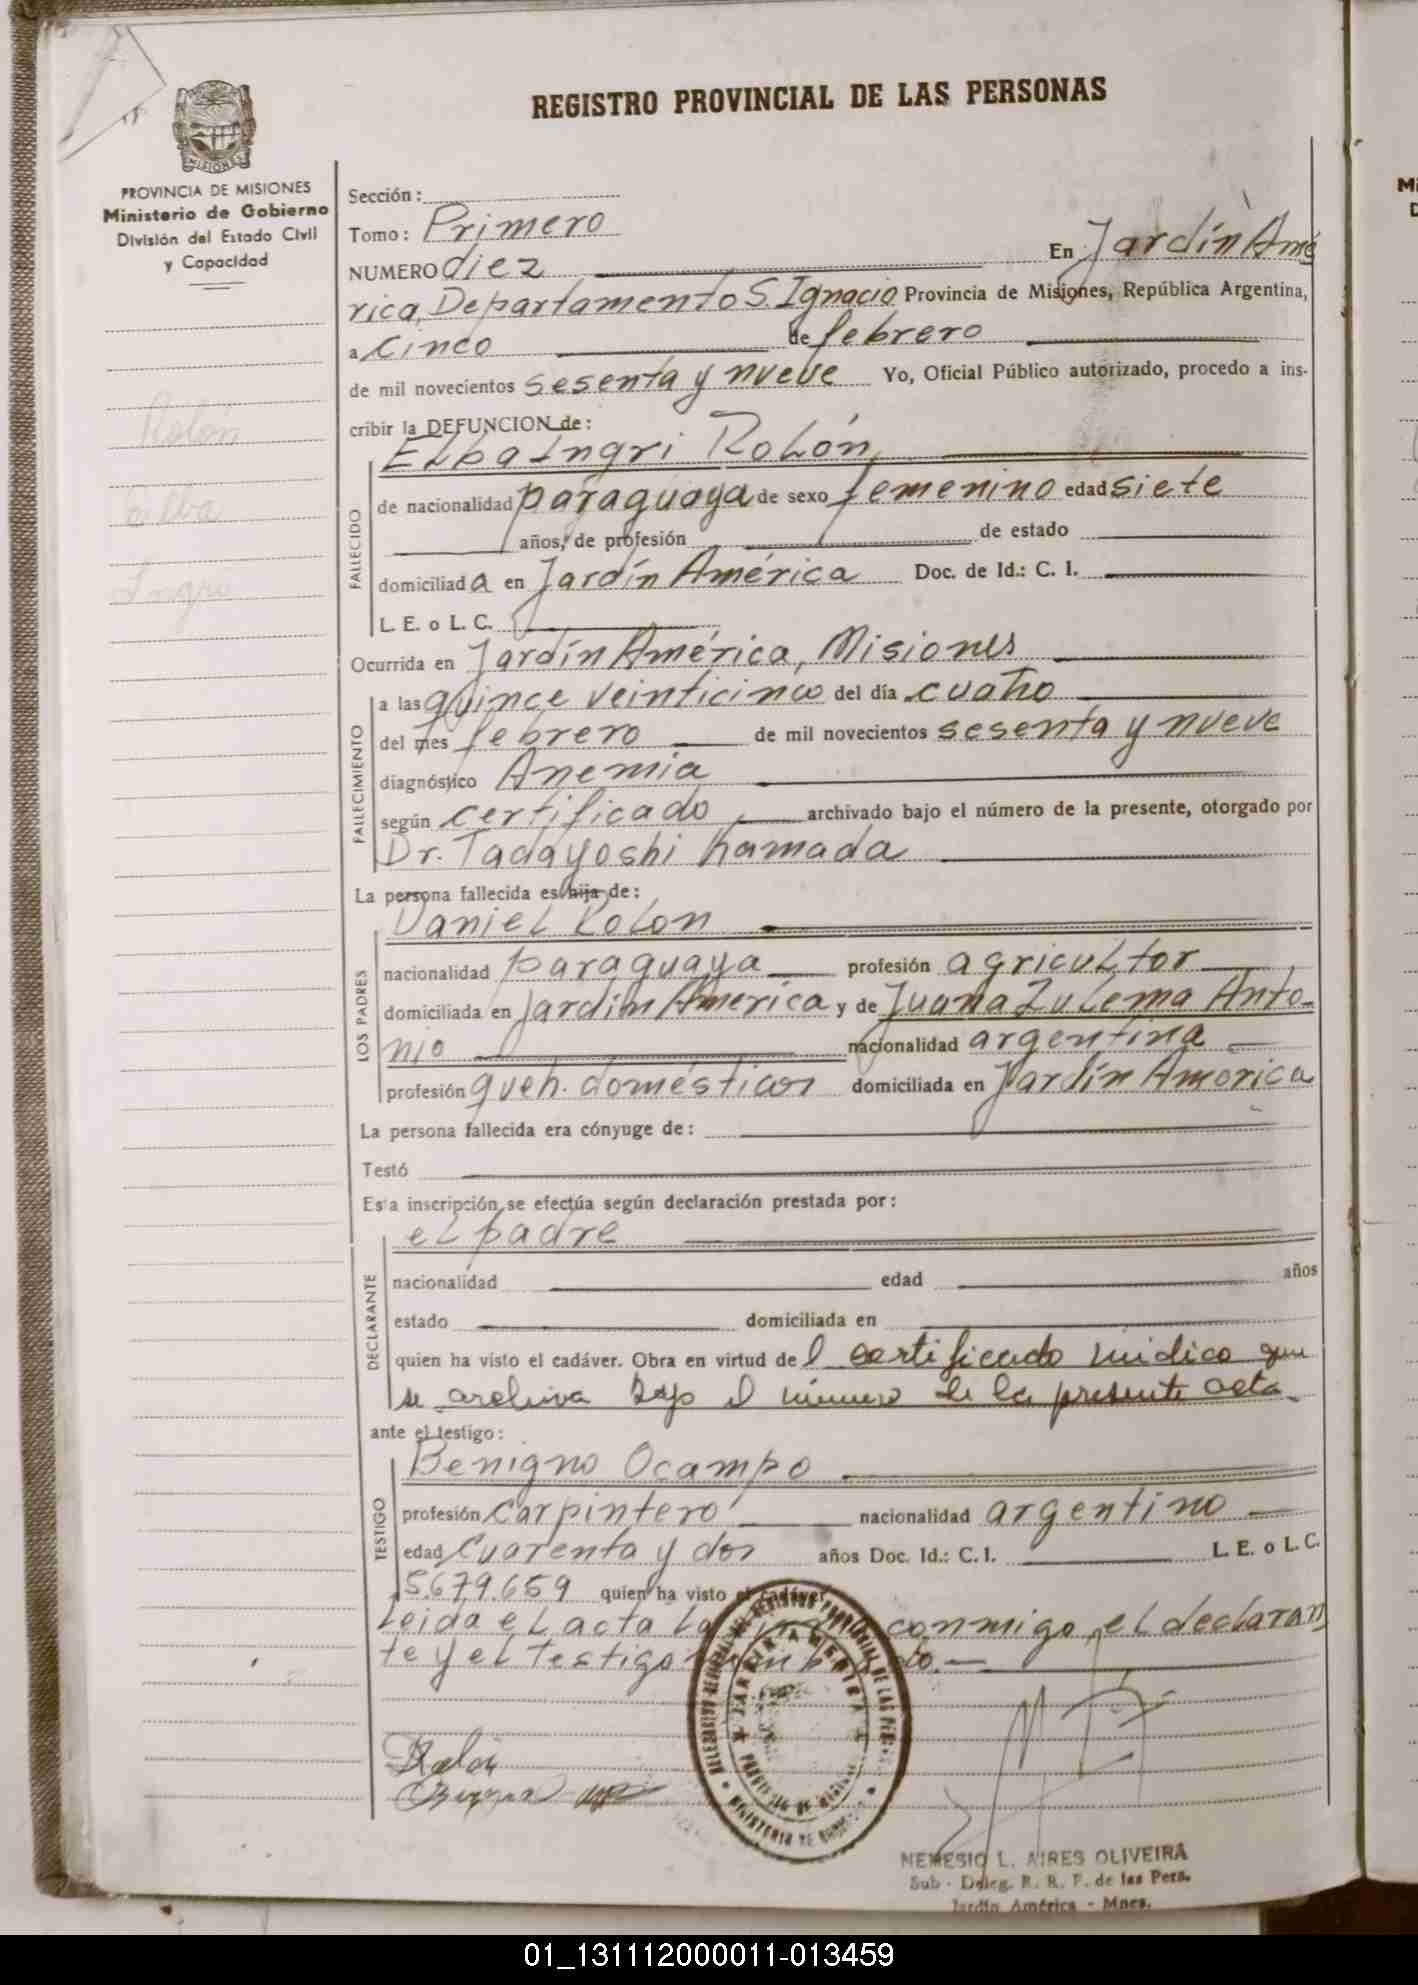 REGISTRO PROVINCIAL DE LAS PERSONAS
MISIONES
PROVINCIA DE MISIONES
Ministerio de Gobierno
División del Estado Civil
y Capacidad
Rolón
Elba
Ingri
Sección:
Tomo: Primero
NUMERO diez En Jardín Amé
rica, Departamento S. Ignacio Provincia de Misiones, República Argentina,
a cinco de febrero
de mil novecientos sesenta y nueve Yo, Oficial Público autorizado, procedo a ins-
cribir la DEFUNCION de:
Elba Ingri Rolón
FALLECIDO
de nacionalidad paraguaya de sexo femenino edad siete
años, de profesión de estado
domiciliada en Jardín América Doc. de Id.: C. I.
L. E. o L. C.
Ocurrida en Jardín América, Misiones
FALLECIMIENTO
a las quince veinticinco del día cuatro
del mes febrero de mil novecientos sesenta y nueve
diagnóstico Anemia
según certificado archivado bajo el número de la presente, otorgado por
Dr. Tadayoshi Kamada
La persona fallecida es hija de:
LOS PADRES
Daniel Rolon
nacionalidad paraguaya profesión agricultor
domiciliada en Jardín América y de Juana Zulema Anto-
nio nacionalidad argentina
profesión queh. domésticos domiciliada en Jardín América
La persona fallecida era cónyuge de:
Testó
Esta inscripción se efectúa según declaración prestada por:
DECLARANTE
el padre
nacionalidad edad años
estado domiciliada en
quien ha visto el cadáver. Obra en virtud del certificado médico que
se archiva bajo el número de la presente acta
ante el testigo:
TESTIGO
Benigno Ocampo
profesión carpintero nacionalidad argentino
edad cuarenta y dos años Doc. Id.: C. I. L. E. o L. C.
5.679.659 quien ha visto el cadáver
Leida el acta la conmigo el declaran
te y el testigo
JARDIN AMERICA
PROVINCIA DE MISIONES
MINISTERIO DE GOBIERNO
Rolón
NEMESIO L. AIRES OLIVEIRA
Sub - Deleg. R. R. P. de las Pers.
Jardín América - Mnes.
01_131112000011-013459